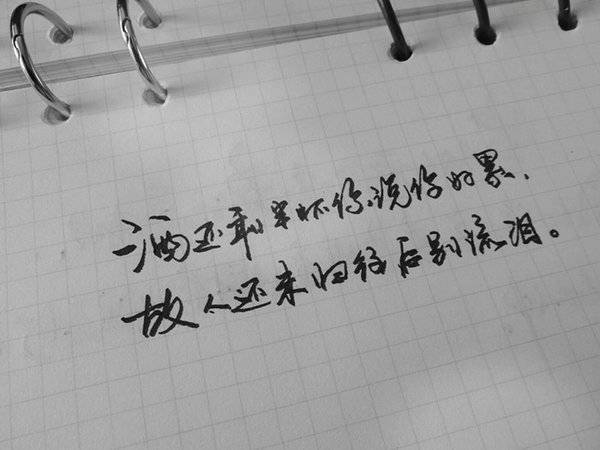 酒还剩半杯你说你好累，
故人还未归往后别流泪。